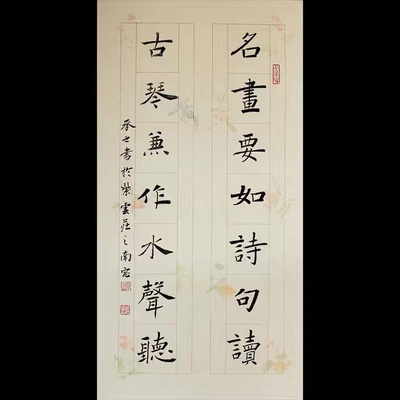 名畫要如詩句讀
古琴兼作水聲聽
承之書於紫雲莊之南窗